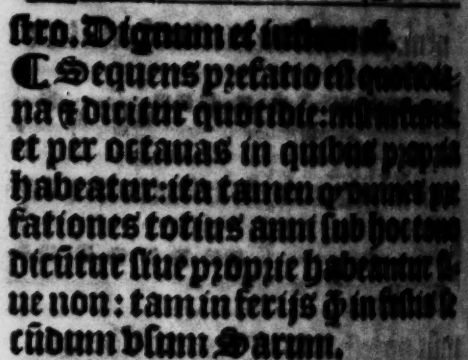 stro. Dignum et iustum est.
¶ Sequens prefatio est quotidia
na & dicitur quotidie: nisi in festis
et per octauas in quibus propria
habeatur: ita tamen qͥ omnes pre
fationes totius anni sub hoc tono
dicūtur siue proprie habeantur si-
ue non: tam in ferijs q̃ in festis se
cūdum vsum Sarum.